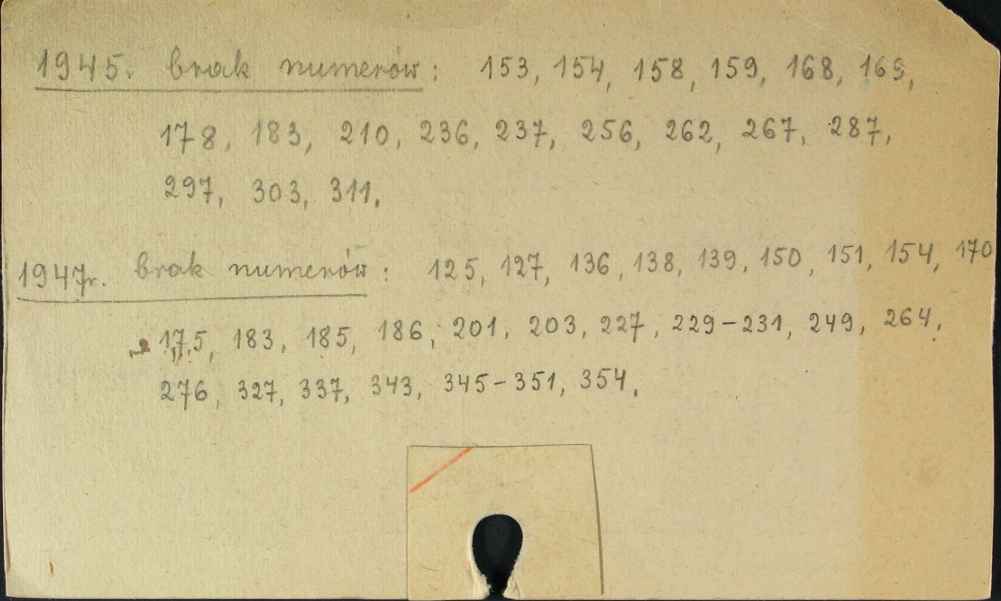 1945. brak numerów: 153, 154, 158, 159, 168, 169,
178, 183, 210, 236, 237, 256, 262, 267, 287,
297, 303, 311.
1947r. brak numerów: 125, 127, 136, 138, 139, 150, 151, 154, 170
175, 183, 185, 186, 201, 203, 227, 229-231, 249, 264,
276, 327, 337, 343, 345-351, 354.